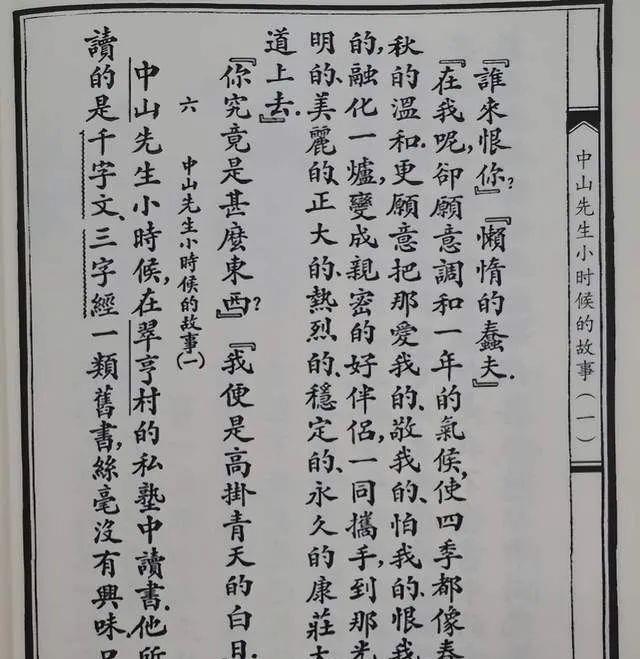 中山先生小时候的故事(一)
『誰來恨你?』『懶惰的蠢夫.』
『在我呢,卻願意調和一年的氣候,使四季都像春
秋的溫和.更願意把那愛我的、敬我的、怕我的、恨我
的,融化一爐,變成親密的好伴侶,一同攜手,到那光
明的、美麗的、正大的、熱烈的、穩定的、永久的康莊大
道上去.』
『你究竟是甚麼東西?』『我便是高掛青天的白日.
六 中山先生小時候的故事(一)
中山先生小時候,在翠亨村的私塾中讀書.他所
讀的是千字文、三字經一類舊書,絲毫沒有興味.只